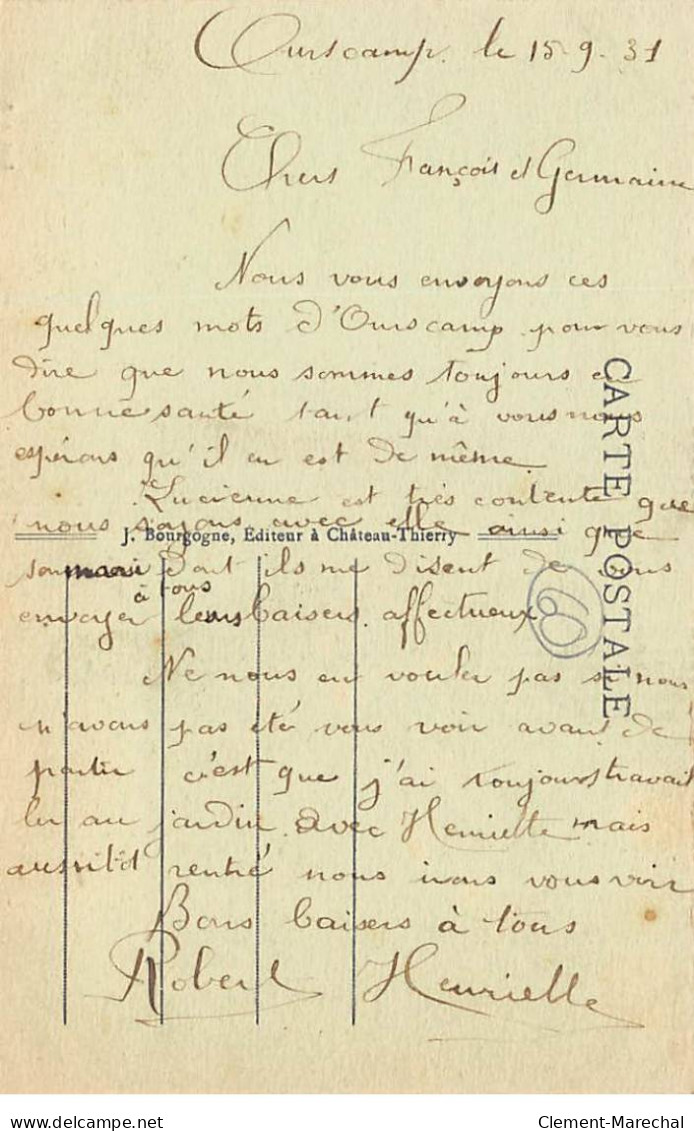 Ourscamp. le 15-9-31
Chers François et Germaine
Nous vous envoyons ces
quelques mots d'Ourscamp pour vous
dire que nous sommes toujours en
bonne santé tant qu'à vous nous
espérons qu'il en est de même
Lucienne est très contente que
nous soyons avec elle ainsi que
J. Bourgogne, Editeur à Château-Thierry
son mari dont ils me disent de vous
à tous
envoyer leurs baisers affectueux
CARTE POSTALE
60
Ne nous en vouler pas si nous
n'avons pas été vous voir avant de
partir c'est que j'ai toujours travail
ler au jardin avec Henriette mais
aussitôt rentré nous irons vous voir
Bons baisers à tous
Robert Henriette
delcampe.net
Clement-Marechal